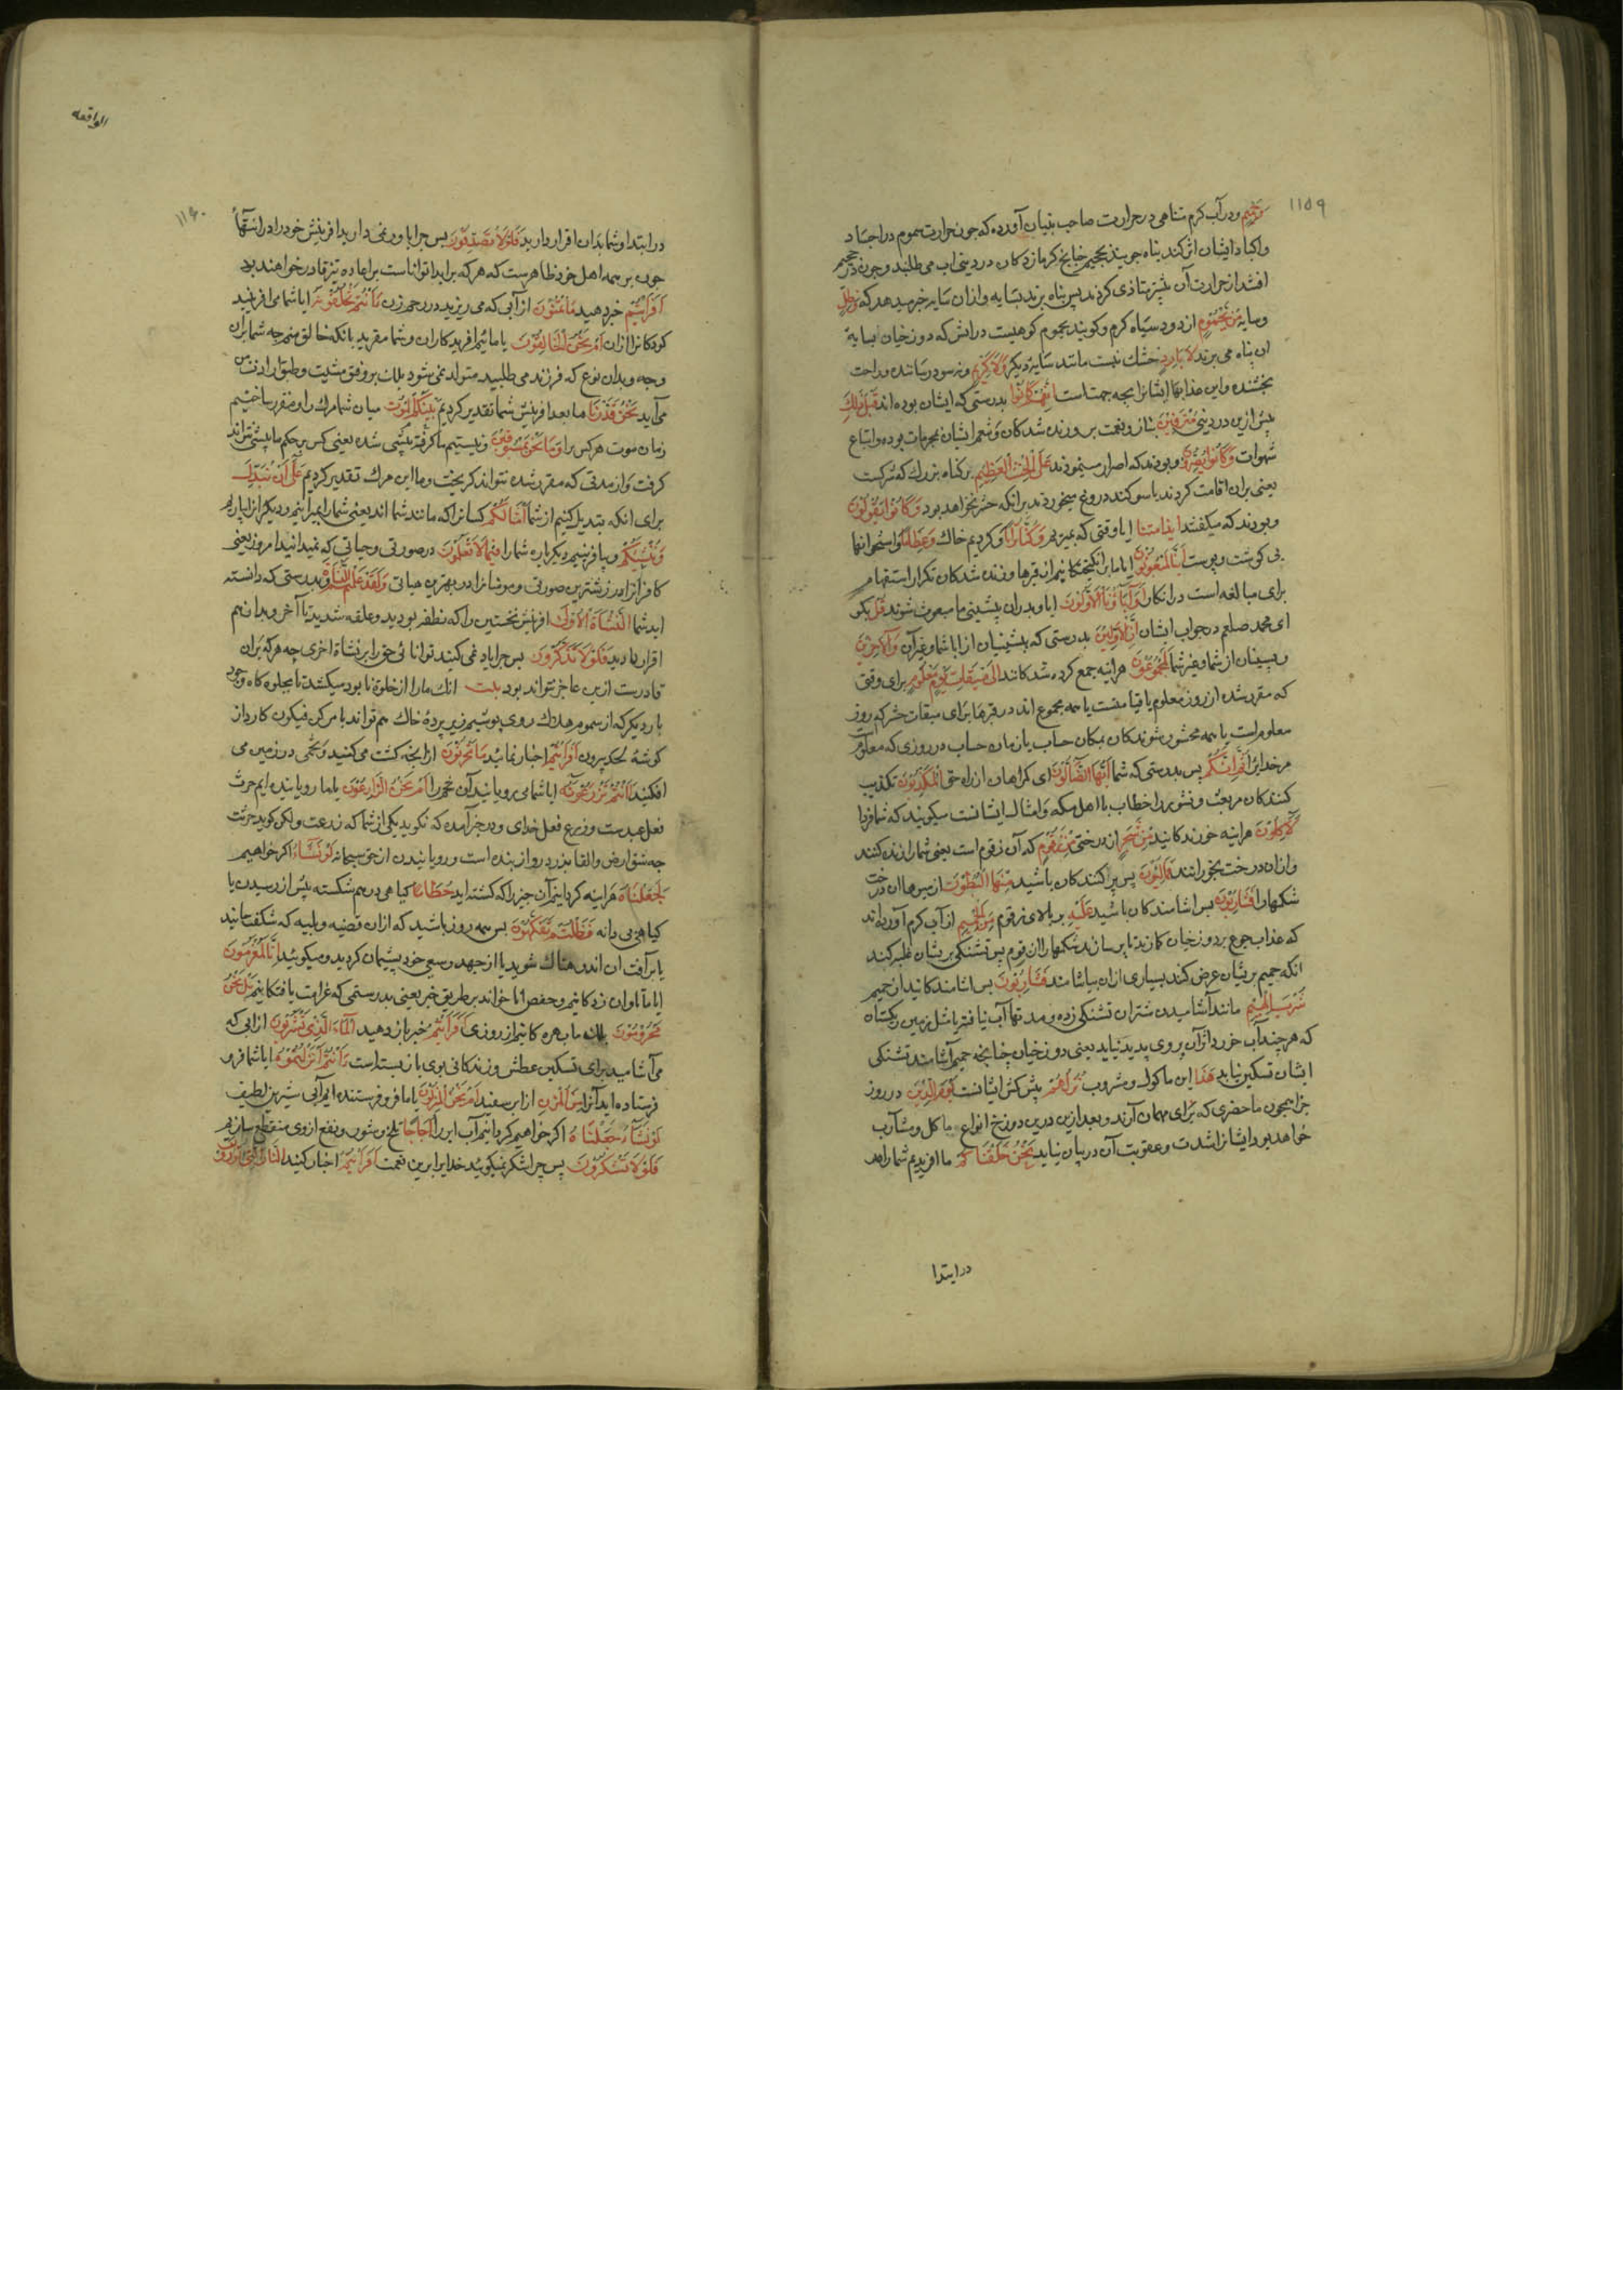 ١١٥٩
وَحَمِيمٍ ودر آب كرم متناهى در حرارت صاحب تبيان آورده كه جون حرارت سموم در اجساد
واكباد ايشان اثر كند پناه جويند بحميم جنانج كرمازدكان در دنيى اب مى طلبند وجون در حميم
افتند از حرارت آن بيشتر متاذى كردند پس پناه برند بسايه وازان سايه خبر ميدهد كه وَظِلٍّ
وسايه مِنْ يَحْمُومٍ از دود سياه كرم وكويند يحموم كوهيست در اتش كه دوزخيان بسايهٔ
ان پناه مى برند لَا بَارِدٍ خنك نيست مانند سايهٔ ديكر وَلَا كَرِيمٍ ونه سود رساننده وراحت
بخشنده واين عذابها ايشانرا بجه جهتست إِنَّهُمْ كَانُوا بدرستى كه ايشان بوده اند قَبْلَ ذَٰلِكَ
پيش ازين در دنيى مُتْرَفِينَ بناز ونعمت پرورنده شدكان وتنعم ايشان بمحرمات بوده واتباع
شهوات وَكَانُوا يُصِرُّونَ وبودند كه اصرار مينمودند عَلَى الْحِنْثِ الْعَظِيمِ بر كناه بزرك كه شركست
يعنى بران اقامت كردند يا سوكند دروغ ميخوردند برانكه حشر نخواهد بود وَكَانُوا يَقُولُونَ
وبودند كه ميكفتند ايذا مِتْنَا ايا وقتى كه بميريم وَكُنَّا تُرَابًا وكرديم خاك وَعِظَامًا واستخوانها
بى كوشت وپوست ءَإِنَّا لَمَبْعُوثُونَ ايا ما برانكيختكانيم از قبرها وزنده شدكان تكرار استفهام
براى مبالغه است در انكار أَوَآبَاؤُنَا الْأَوَّلُونَ ايا وپدران پيشينى ما مبعوث شوند قُلْ بكو
اى محمد صلعم در جواب ايشان إِنَّ الْأَوَّلِينَ بدرستى كه پيشينيان از ابا شما وغير آن وَالْآخِرِينَ
وپسينان از شما وغير شما لَمَجْمُوعُونَ هراينه جمع كرده شدكانند إِلَىٰ مِيقَاتِ يَوْمٍ مَعْلُومٍ براى وقتى
كه مقرر شده از روز معلوم يا قيامتست يا همه مجموع اند در قبرها براى ميقات حشر كه روز
معلومست يا همه محشور شوندكان بمكان حساب يا زمان حساب در روزى كه معلوم
مر خدايرا ثُمَّ إِنَّكُمْ پس بدرستى كه شما أَيُّهَا الضَّالُّونَ اى كمراهان از راه حق الْمُكَذِّبُونَ تكذيب
كنندكان مر بعث ونشور را خطاب با اهل مكه وامثال ايشانست ميكويند كه شما فردا
لَآكِلُونَ هراينه خورندكانيد مِنْ شَجَرٍ از درختى مِنْ زَقُّومٍ كه آن زقوم است يعنى شما را زنده كنند
وازان درخت بخورانند فَمَالِئُونَ پس پر كنندكان باشيد مِنْهَا الْبُطُونَ از ميوهاى ان درخت
شكمها را فَشَارِبُونَ پس اشامندكان باشيد عَلَيْهِ بر بالاى زقوم مِنَ الْحَمِيمِ از آب كرم آورده اند
كه عذاب جوع بر دوزخيان كمارند تا پر سازند شكمها را از زقوم پس تشنكى بريشان غلبه كند
انكه حميم بريشان عرض كند بسيارى ازان بياشامند فَشَارِبُونَ پس اشامندكانيد از حميم
شُرْبَ الْهِيمِ مانند آشاميدن شتران تشنكى زده ومدتها آب نيافته يا مثل زمين ريكستان
كه هرچند آب خورد از آن بر روى پديد نيايد يعنى دوزخيان چنانچه حميم آشامند تشنكى
ايشان تسكين نيابد هَٰذَا اين ماكول ومشروب نُزُلُهُمْ پيش كش ايشانست يَوْمَ الدِّينِ در روز
جزا همچون ماحضرى كه براى مهمان آرند وبعد ازين درين دوزخ انواع ماكل ومشارب
خواهد بود ايشانرا شدت وعقوبت آن در بيان نيايد نَحْنُ خَلَقْنَاكُمْ ما افريديم شما را هم
در ابتدا
الواقعه
١١٦٠
در ابتدا وشما بدان اقرار داريد فَلَوْلَا تُصَدِّقُونَ پس چرا باور نمى داريد افرينش خود را در انتها
جون بر همه اهل خرد ظاهرست كه هر كه بر ابدا تواناست بر اعاده نيز قادر خواهند بود
أَفَرَأَيْتُمْ خبر دهيد مَا تُمْنُونَ از آبى كه مى ريزيد در رحم زن ءَأَنْتُمْ تَخْلُقُونَهُ ايا شما مى افرينيد
كودكانرا ازان أَمْ نَحْنُ الْخَالِقُونَ يا مائيم افريدكاران وشما مقريد بانكه خالق منم چه شما بران
وجه وبدان نوع كه فرزند مى طلبيد متولد نمى شود بلك بر وفق مشيت وطبق ارادت من
مى آيد نَحْنُ قَدَّرْنَا ما بعد افرينش شما تقدير كرديم بَيْنَكُمُ الْمَوْتَ ميان شما مرك را ومقرر ساختيم
زمان موت هر كس را وَمَا نَحْنُ بِمَسْبُوقِينَ ونيستيم ما كرفته پيشى شده يعنى كس بر حكم ما پيشى نتواند
كرفت واز مدتى كه مقرر شده نتواند كريخت وما اين مرك تقدير كرديم عَلَىٰ أَنْ نُبَدِّلَ
براى انكه بتبديل كنيم از شما أَمْثَالَكُمْ كسانرا كه مانند شما اند يعنى شما را بميرانيم وديكرانرا بياريم
وَنُنْشِئَكُمْ وبيافرينيم ديكرباره شما را فِيمَا لَا تَعْلَمُونَ در صورتى وحياتى كه نميدانيد امروز يعنى
كافرانرا در زشترين صورتى ومومنانرا در بهترين حياتى وَلَقَدْ عَلِمْتُمُ النَّشْأَةَ وبدرستى كه دانسته
ايد شما النَّشْأَةَ الْأُولَىٰ افرينش نخستين را كه نطفه بوديد وعلقه شديد تا آخر وبدانهم
اقرار داريد فَلَوْلَا تَذَكَّرُونَ پس چرا ياد نمى كنند توانائى حق را بر نشاة اخرى چه هر كه بران
قادرست ازين عاجز نتواند بود بيت انك ما را از خلوة نابود ميكشد تا بجلوه كاه وجود
بار ديكر كه از سموم هلاك روى پوشيم زير پردهٔ خاك هم تواند بامر كن فيكون كه از
كوشهٔ لحد بيرون أَفَرَأَيْتُمْ اخبار نمائيد مَا تَحْرُثُونَ ازانچه كشت مى كنيد وتخمى در زمين مى
افكنيد ءَأَنْتُمْ تَزْرَعُونَهُ ايا شما مى رويانيد آن تخم را أَمْ نَحْنُ الزَّارِعُونَ يا ما روياننده ايم حرث
فعل عبدست وزرع فعل خداى ودر خبر آمده كه نكويد يكى از شما كه زرعت ولكن كويد حرثت
چه شق ارض والقا بذر درو از بنده است ورويانيدن از حق سبحانه لَوْ نَشَاءُ اكر خواهيم
لَجَعَلْنَاهُ هراينه كردانيم آن چيز را كه كشته ايد حُطَامًا كياهى درهم شكسته پيش از رسيدن يا
كياهى بى دانه فَظَلْتُمْ تَفَكَّهُونَ پس همه روز باشيد كه ازان قضيه وبليه كه شكفت مانيد
يا بر آفت ان اندوهناك شويد يا از جهد وسعى خود پشيمان كرديد وميكوئيد إِنَّا لَمُغْرَمُونَ
ايا ما تاوان زدكانيم وحفص انا خواند بر طريق خبر يعنى بدرستى كه غرامت يافتكانيم بَلْ نَحْنُ
مَحْرُومُونَ بلكه ما بى بهره كانيم از روزى أَفَرَأَيْتُمُ خبر باز دهيد الْمَاءَ الَّذِي تَشْرَبُونَ از ابى كه
مى آشاميد براى تسكين عطش وزندكانى بوى باز بسته است ءَأَنْتُمْ أَنْزَلْتُمُوهُ ايا شما فرو
فرستاده ايد آنرا مِنَ الْمُزْنِ از ابر سفيد أَمْ نَحْنُ الْمُنْزِلُونَ يا ما فرو فرستنده ايم آبى شيرين لطيف
لَوْ نَشَاءُ جَعَلْنَاهُ اكر خواهيم كردانيم آب ابر را أُجَاجًا تلخ وشور ونفع از وى منقطع سازيم
فَلَوْلَا تَشْكُرُونَ پس چرا شكر نميكوئيد خدايرا برين نعمت أَفَرَأَيْتُمُ اخبار كنيد النَّارَ الَّتِي تُورُونَ